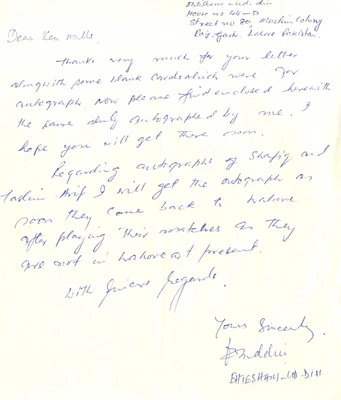 Ehtesham-ud-din
House no 44-D
Street no 80, Muslim Colony
Raj Garh, Lahore Pakistan.
Dear Ken Mills.
Thanks very much for your letter
alongwith some blank cards which were for
autograph. Now please find enclosed herewith
the same duly autographed by me. I
hope you will get these soon.
Regarding autographs of Shafiq and
Taslim Arif I will get the autograph as
soon they come back to Lahore
after playing their matches as they
are not in Lahore at present.
With Sincere Regards.
Yours Sincerely,
EHTESHAM-UD-DIN